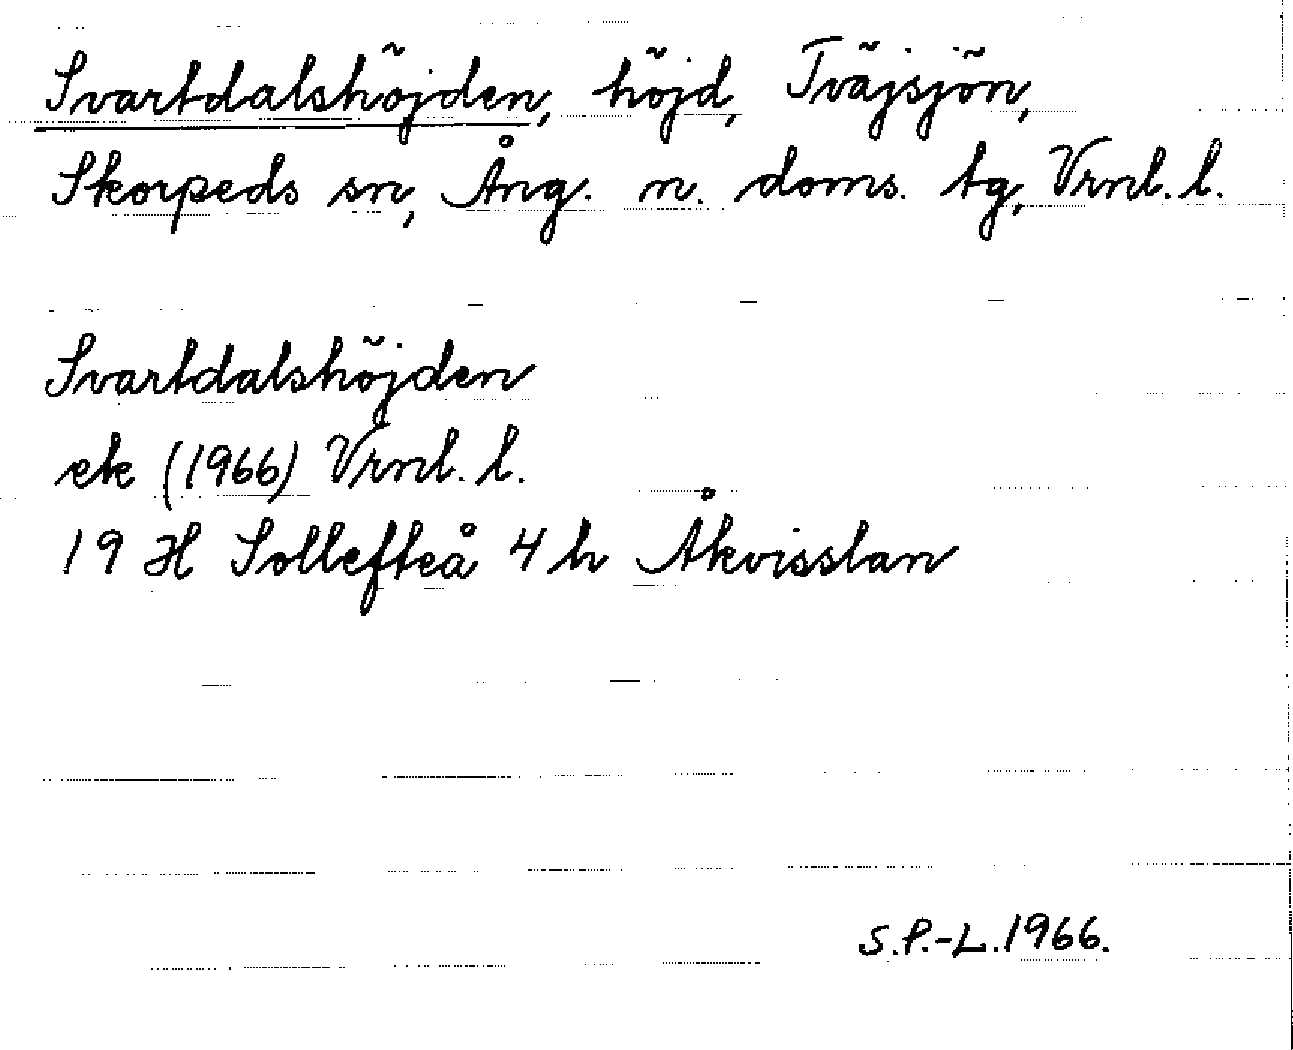 Svartdalshöjden, höjd, Tväjsjön,
Skorpeds sn, Ång. n. doms. tg, Vrnl. l.
Svartdalshöjden
ek (1966) Vrnl. l.
19 H Sollefteå 4 h Åkvisslan
S.P.-L.1966.